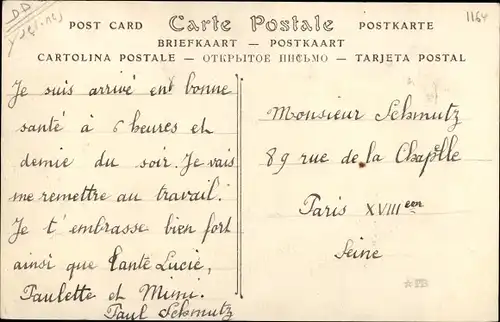 1164
POST CARD Carte Postale POSTKARTE
BRIEFKAART — POSTKAART
CARTOLINA POSTALE — ОТКРЫТОЕ ПИСЬМО — TARJETA POSTAL
Je suis arrivé en bonne
santé à 6 heures et
demie du soir. Je vais
me remettre au travail.
Je t'embrasse bien fort
ainsi que tante Lucie,
Paulette et Mimi.
Paul Schmutz
Monsieur Schmutz
89 rue de la Chapelle
Paris XVIIIeem
Seine
PB